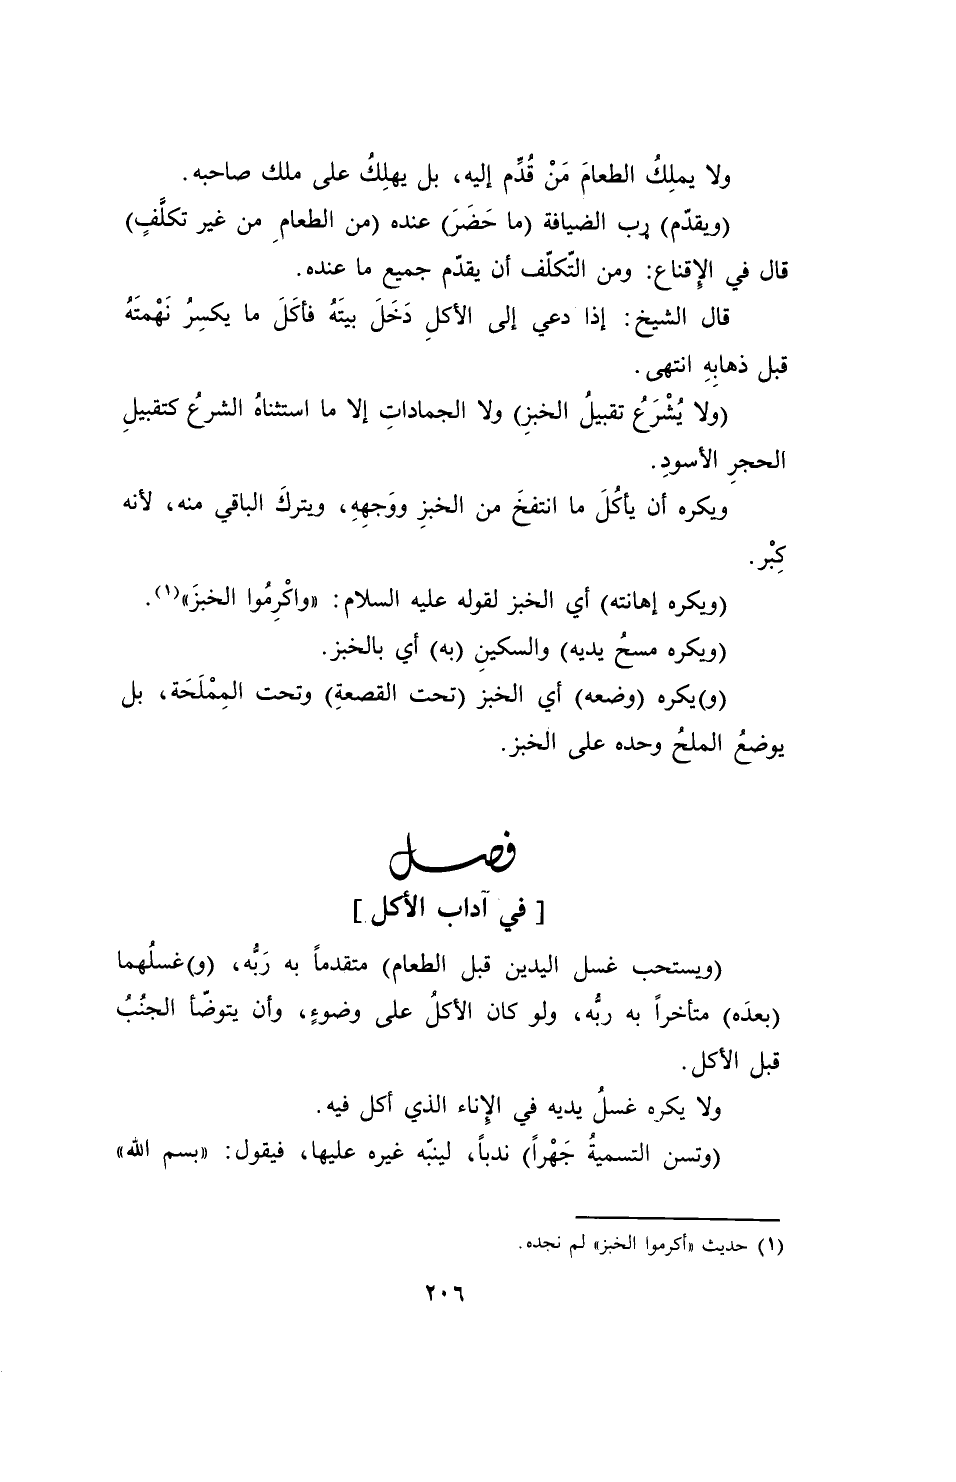 ولا يملِكُ الطعامَ مَنْ قُدِّم إليه، بل يهلِكُ على ملك صاحبه.
(ويقدّم) رب الضيافة (ما حَضَرَ) عنده (من الطعامِ من غير تكلَّفٍ)
قال في الإِقناع: ومن التّكلّف أن يقدّم جميع ما عنده.
قال الشيخ: إذا دعي إلى الأكلِ دَخَلَ بيتَهُ فأكَلَ ما يكسِرُ نَهْمتَهُ
قبل ذهابِهِ انتهى.
(ولا يُشْرَعُ تقبيلُ الخبزِ) ولا الجماداتِ إلا ما استثناهُ الشرعُ كتقبيلِ
الحجرِ الأسودِ.
ويكره أن يأكُلَ ما انتفخَ من الخبزِ ووَجهِهِ، ويتركَ الباقي منه، لأنه
كِبْر.
(ويكره إهانته) أي الخبز لقوله عليه السلام: «واكْرِمُوا الخبزَ»(١).
(ويكره مسحُ يديه) والسكينِ (به) أي بالخبز.
(و)يكره (وضعه) أي الخبز (تحت القصعةِ) وتحت المِمْلَحَة، بل
يوضعُ الملحُ وحده على الخبز.
فصل
[في آداب الأكل]
(ويستحب غسل اليدين قبل الطعام) متقدماً به رَبُّه، (و)غسلُهما
(بعدَه) متأخراً به ربُّه، ولو كان الأكلُ على وضوءٍ، وأن يتوضّأ الجنُبُ
قبل الأكل.
ولا يكره غسلُ يديه في الإِناء الذي أكل فيه.
(وتسن التسميةُ جَهْراً) ندباً، لينبّه غيره عليها، فيقول: «بسم الله»
(١) حديث «أكرموا الخبز» لم نجده.
٢٠٦